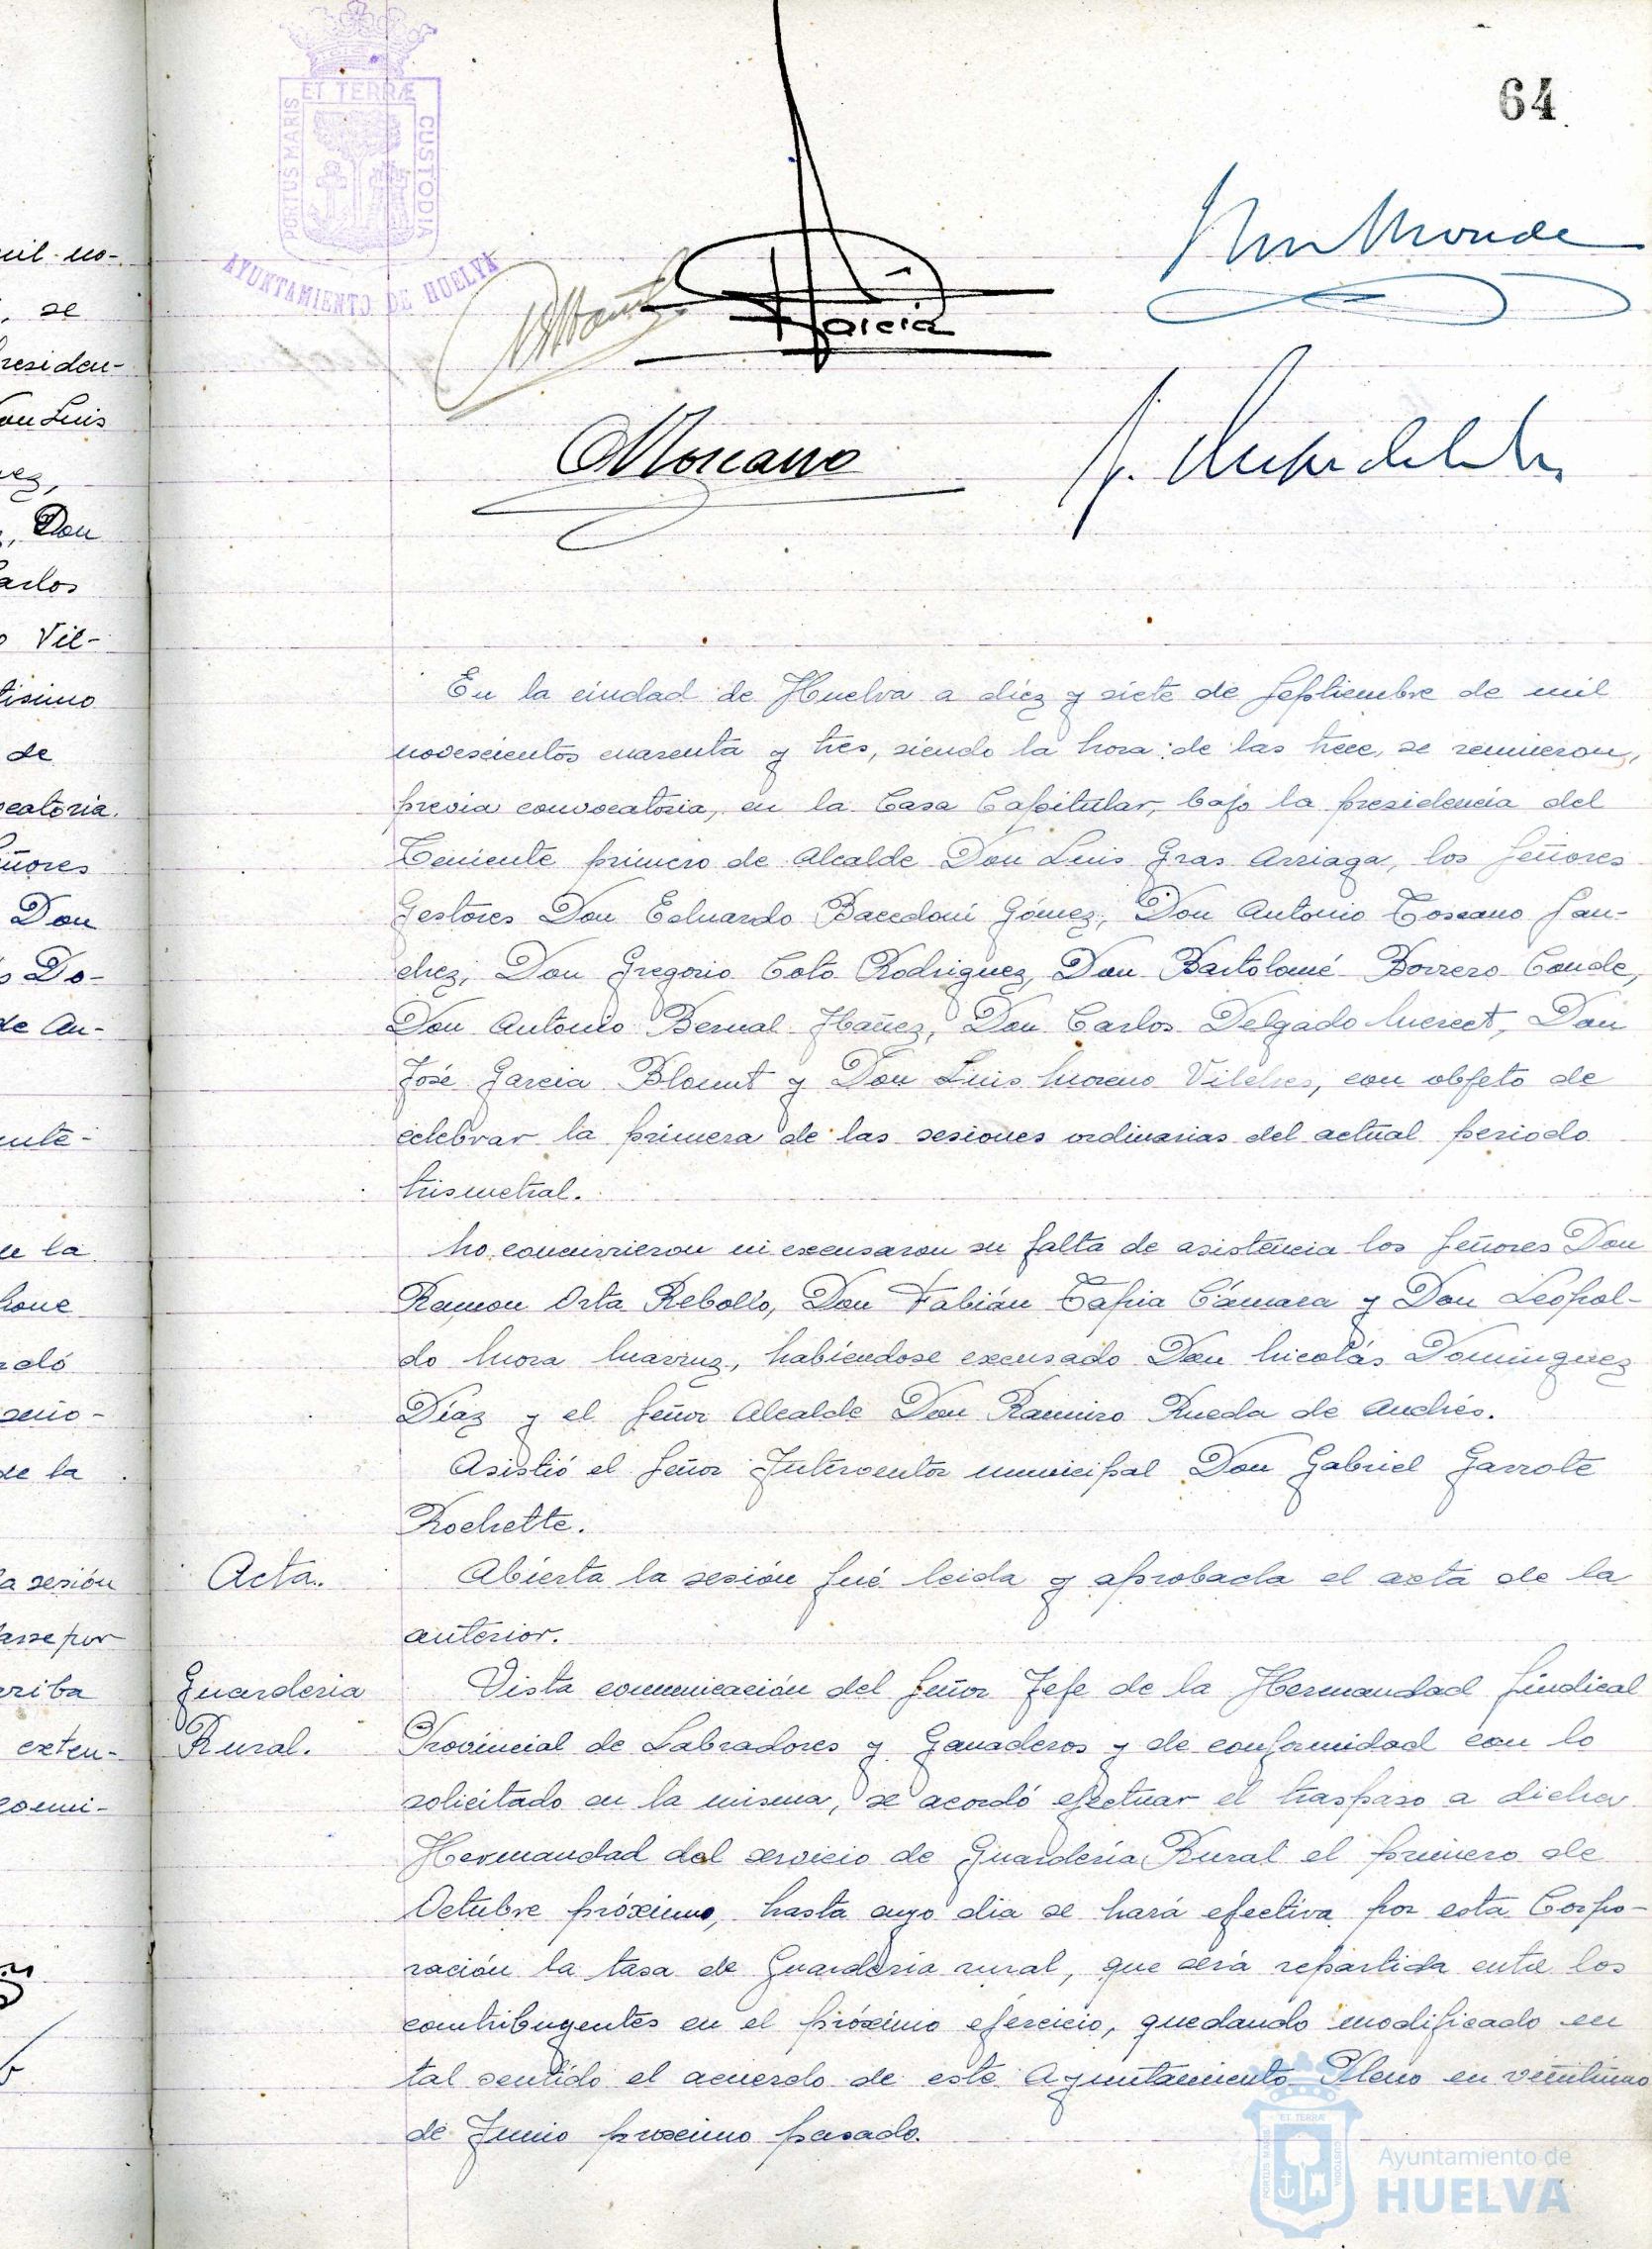 64
ET TERRÆ
PORTUS MARIS
CUSTODIA
AYUNTAMIENTO DE HUELVA
García
En la ciudad de Huelva a diez y siete de Septiembre de mil
novescientos cuarenta y tres, siendo la hora de las trece, se reunieron,
previa convocatoria, en la Casa Capitular, bajo la presidencia del
Teniente primero de Alcalde Don Luis Gras Arriaga, los Señores
Gestores Don Eduardo Baccdoni Gómez, Don Antonio Toscano San-
chez, Don Gregorio Coto Rodriguez, Don Bartolomé Borrero Conde,
Don Antonio Bernal Ibañez, Don Carlos Delgado Merect, Don
José Garcia Blount y Don Luis Moreno Vilches, con objeto de
celebrar la primera de las sesiones ordinarias del actual periodo
trismetral.
No concurrieron ni excusaron su falta de asistencia los Señores Don
Ramon Orta Rebollo, Don Fabián Tapia Cámara y Don Leopol-
do Mora Marruz, habiendose excusado Don Nicolás Dominguez
Díaz y el Señor Alcalde Don Ramiro Rueda de Andrés.
Asistió el Señor Interventor municipal Don Gabriel Garrote
Rochette.
Acta.
Abierta la sesión fué leida y aprobada el acta de la
anterior.
Guarderia
Rural.
Vista comunicación del Señor Jefe de la Hermandad Sindical
Provincial de Labradores y Ganaderos y de conformidad con lo
solicitado en la misma, se acordó efectuar el traspaso a dicha
Hermandad del servicio de Guardería Rural el primero de
Octubre próximo, hasta cuyo dia se hará efectiva por esta Corpo-
ración la tasa de Guarderia rural, que será repartida entre los
contribuyentes en el próximo ejercicio, quedando modificado en
tal sentido el acuerdo de este Ayuntamiento Pleno en veintiuno
de Junio proximo pasado.
Ayuntamiento de
HUELVA